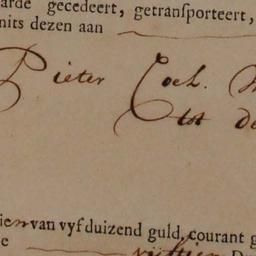 aarde gecedeert, getransporteert,
mits dezen aan
Pieter Coch.
tot de
ien van vyf duizend guld, courant g
e vyftien